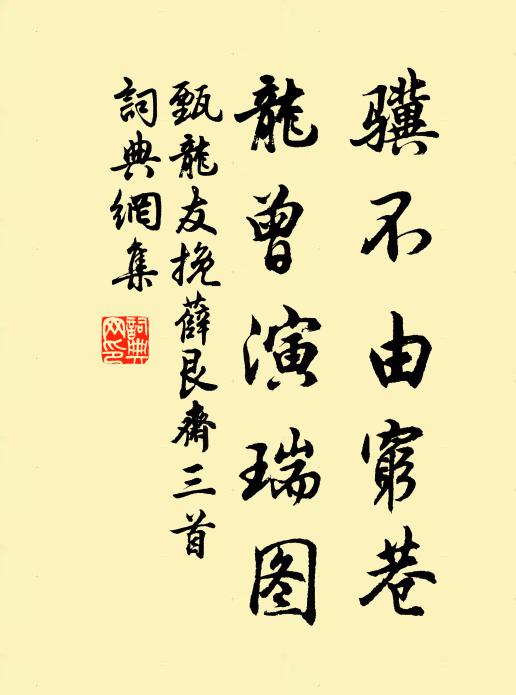 骥不由窮巷
龍曾演瑞图
甄龍友挽薛艮齋三首
詞典網集
詞典網印